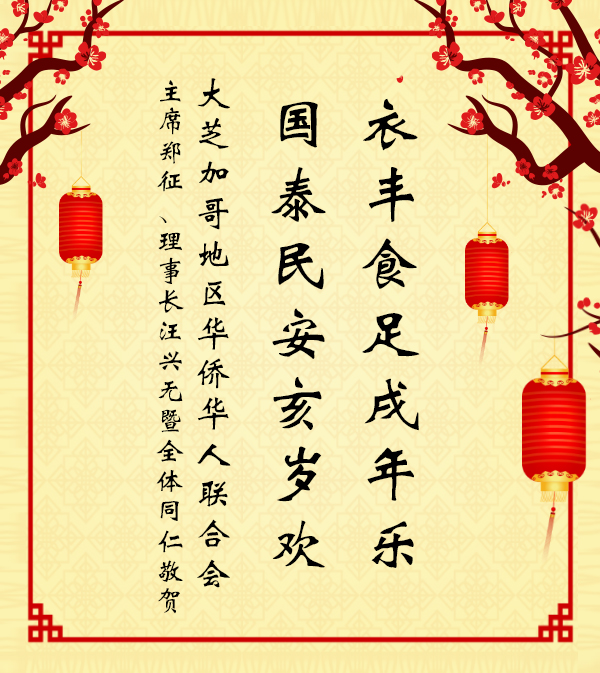 衣丰食足戌年乐
国泰民安亥岁欢
大芝加哥地区华侨华人联合会
主席郑征、理事长汪兴无暨全体同仁敬贺